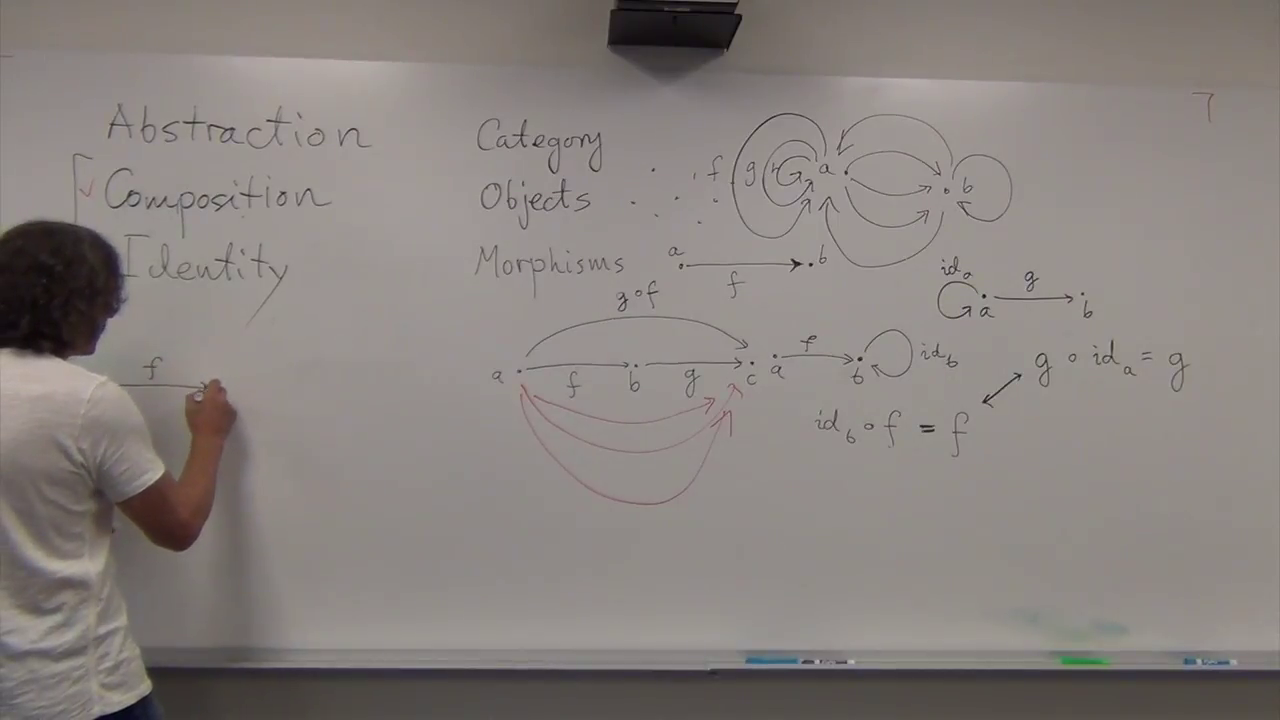 Abstraction
Composition
Identity
f
Category
Objects
Morphisms
a f b
f g a b
7
g∘f
a f b g c
a f b id_b
id_a a g b
g ∘ id_a = g
id_b ∘ f = f